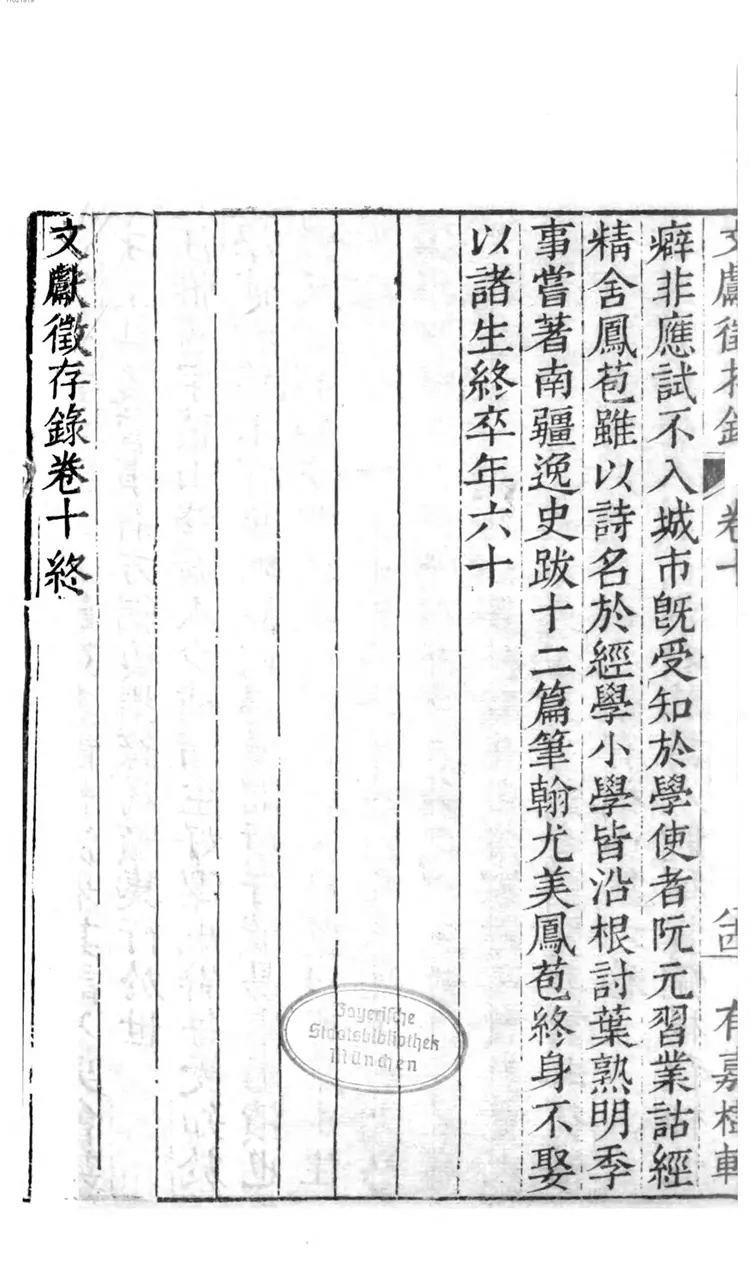 文獻徵存錄 卷十 有嘉樹軒
癖非應試不入城市既受知於學使者阮元習業詁經
精舍鳳苞雖以詩名於經學小學皆沿根討葉熟明季
事嘗著南疆逸史跋十二篇筆翰尤美鳳苞終身不娶
以諸生終卒年六十
文獻徵存錄卷十終
Bayerische
Staatsbibliothek
München